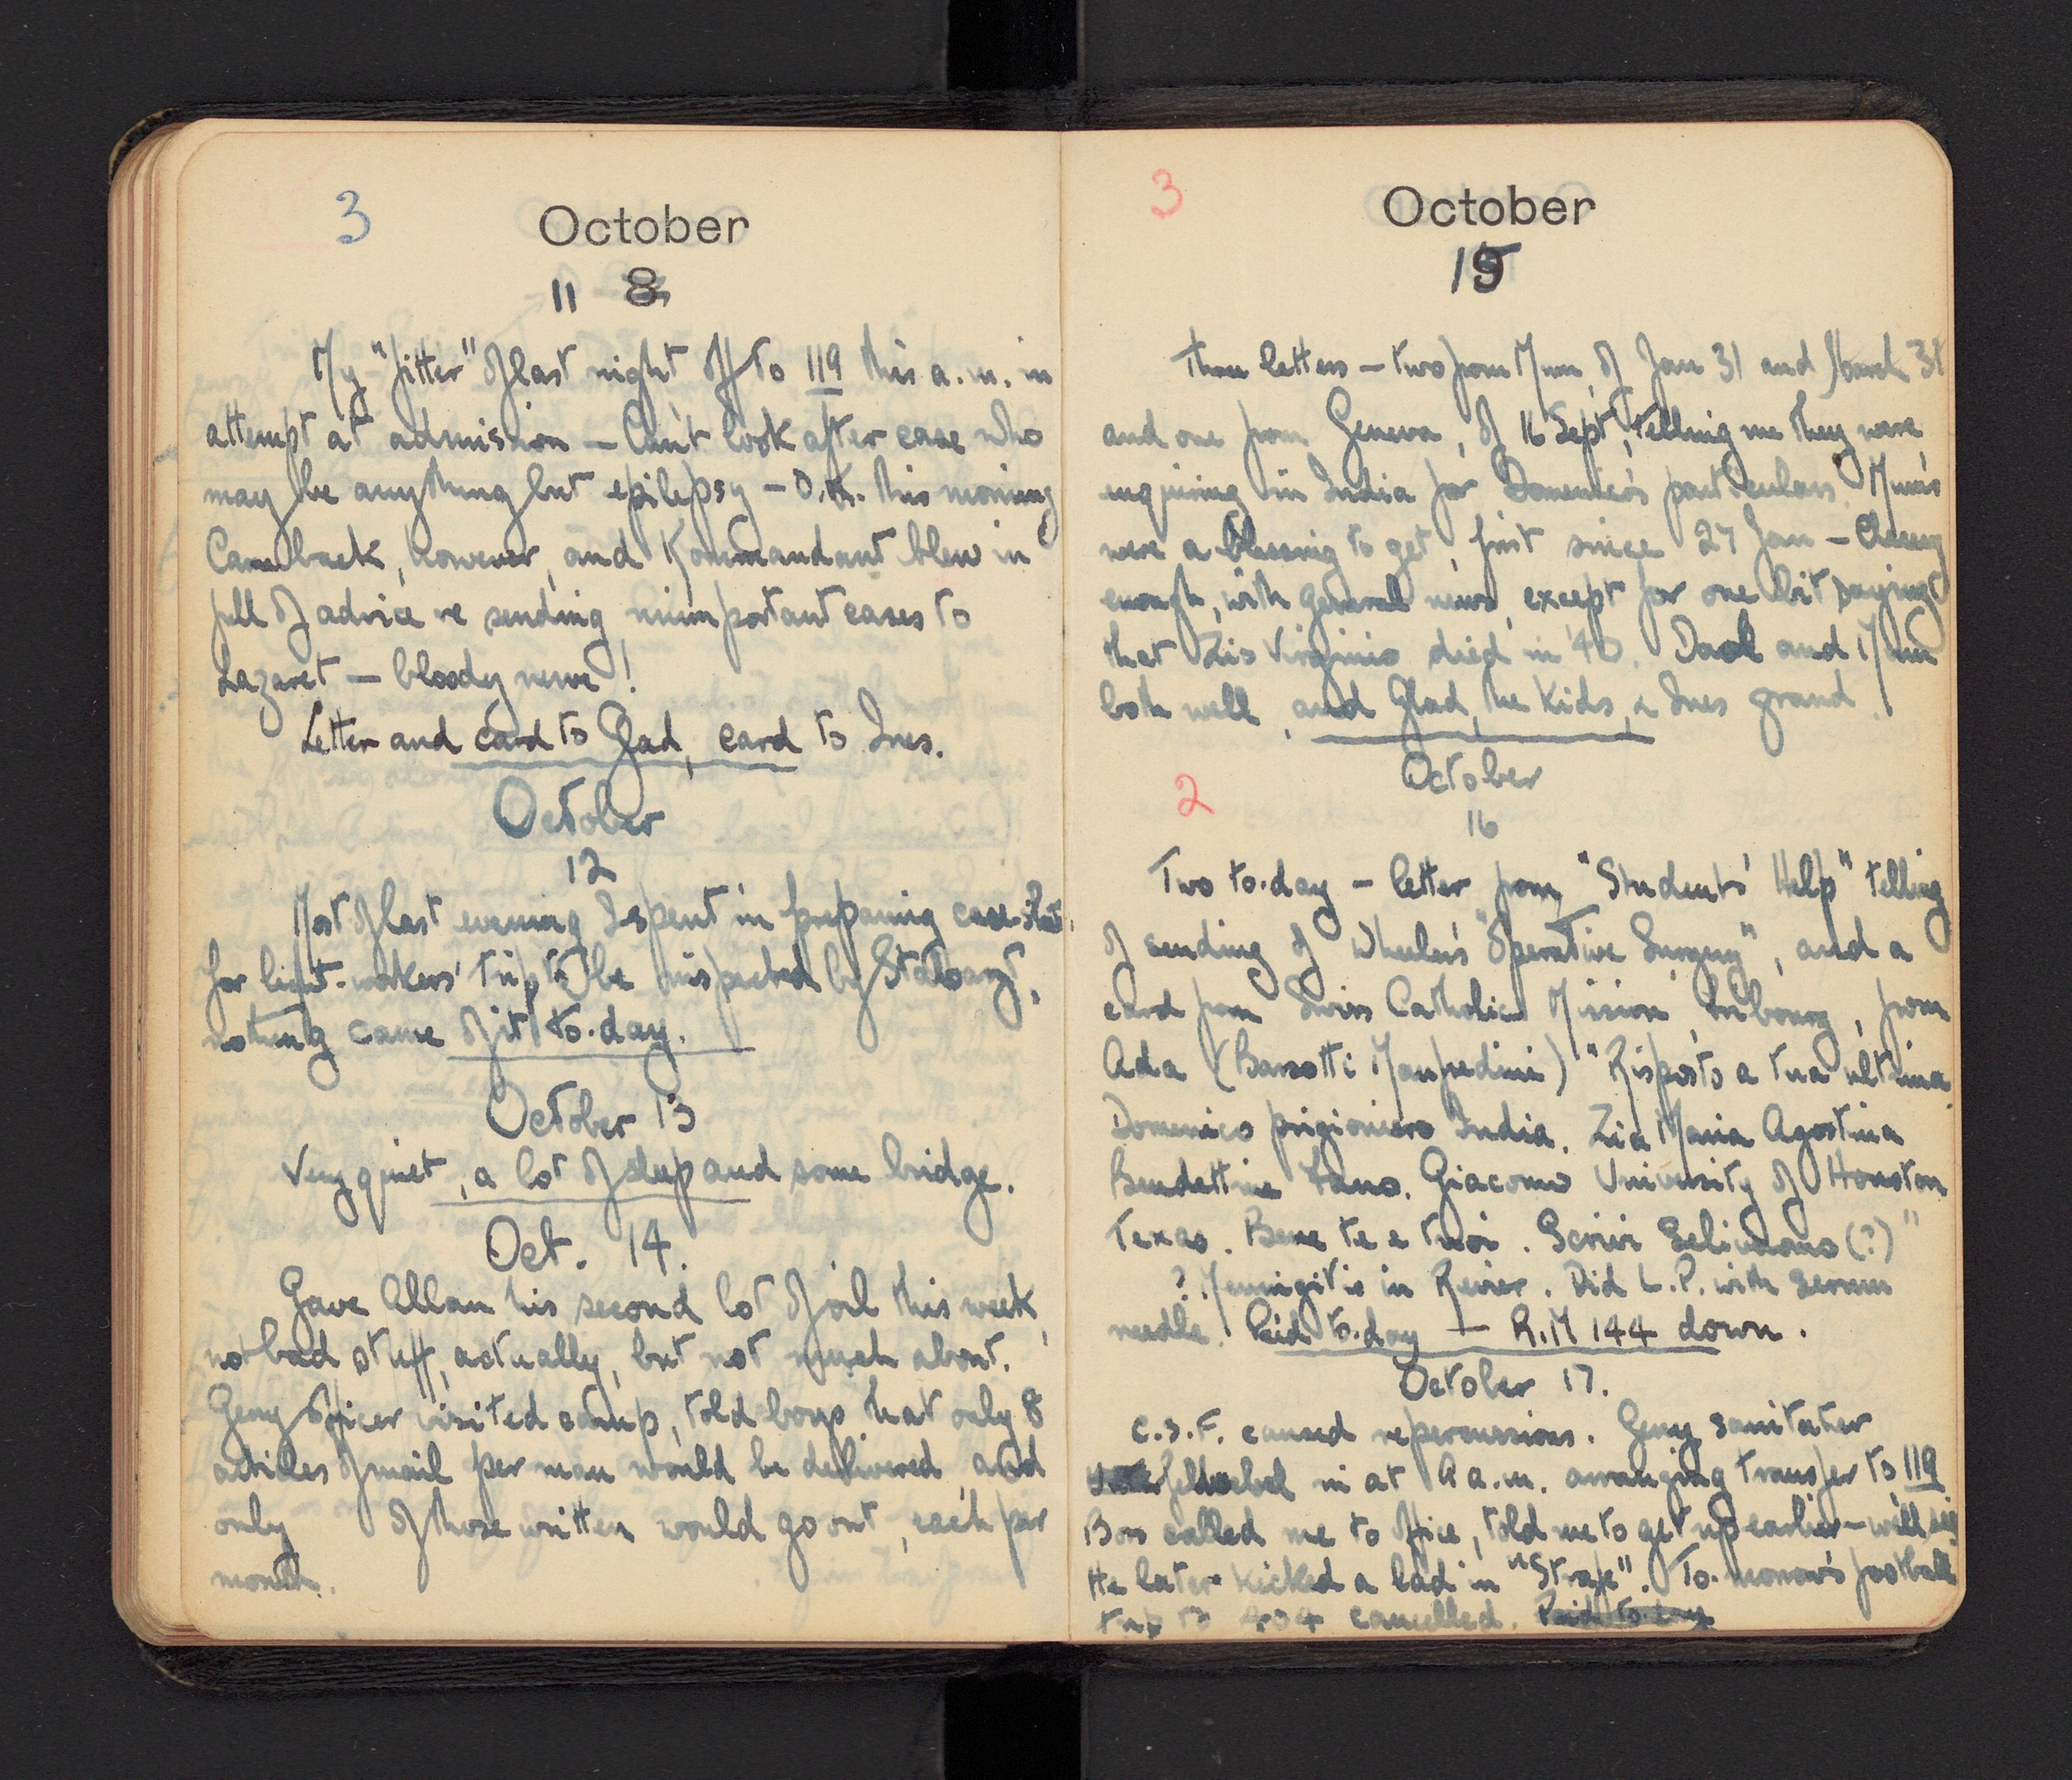 3
October
11 8
My "Jitter" of last night off to 119 this a.m. in
attempt at admission — Can't look after case who
may be anything but epilepsy — O.K. this morning
Came back, however, and Kommandant blew in
full of advice re sending unimportant cases to
Lazaret — bloody nerve!
Letter and card to Glad, card to Ines.
October
12
Most of last evening I spent in preparing case
for light-workers' trip to be inspected by Stabarzt,
nothing came of it to-day.
October 13
Very quiet, a lot of sleep and some bridge.
Oct. 14.
Gave Allan his second lot of oil this week,
not bad stuff, actually, but not much about.
Gerry Officer visited camp, told boys that only 8
articles of mail per man would be delivered, and
only of those written would go out, each per
month.
3
October
15
Three letters — two from Mum, of Jan 31 and March 31
and one from Geneva, of 16 Sept, telling me they were
enquiring in India for Domenico's particulars. Mum's
were a blessing to get, first since 27 Jan — Cheery
enough, with general news, except for one bit saying
that Zio Virginio died in '40. Dad and Mum
both well, and Glad, the kids, & Ines grand.
October
2
16
Two to-day — letter from "Students' Help" telling
of sending of Wheeler's "Operative Surgery", and a
card from Swiss Catholic Mission, Fribourg, from
Ada (Barsotti Manfredini) "Risposto a tua ultima.
Domenico prigioniero India. Zia Maria Agostina
Fano. Giacomo University of Houston
Texas. Bene te e tuoi. Scrivi (?)"
? Meningitis in Revier. Did L.P. with serum
needle. Paid to-day — R.M 144 down.
October 17.
C.S.F. caused repercussions. Gerry sanitater
feldwebel in at a.m. arranging transfer to 119
Boss called me to office, told me to get up earlier — will
He later kicked a lad in "Strafe". To-morrow's football
trip to 404 cancelled. Paid to-day